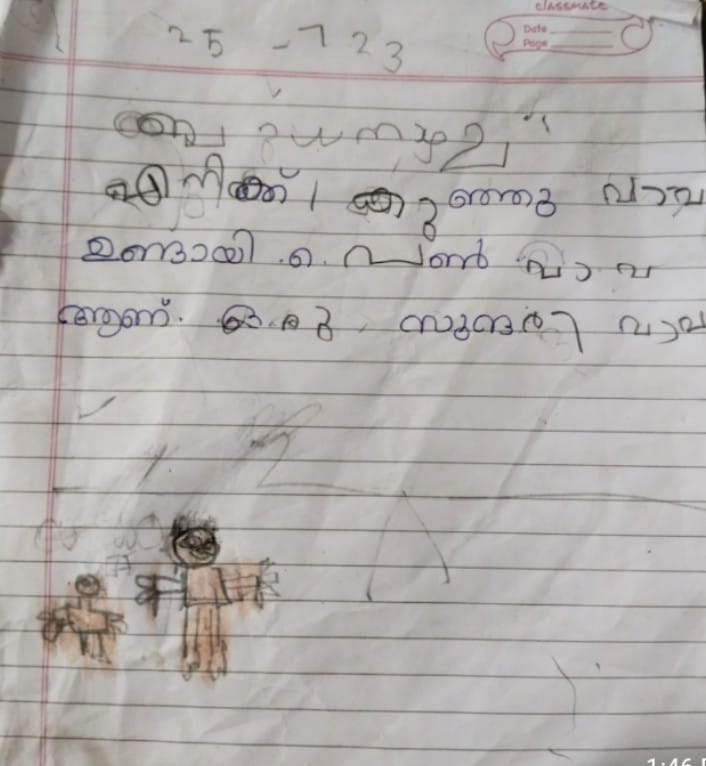 CLASSMATE
Date
Page
25-7 23
ബുധനാഴ്ച
എനിക്ക് കുഞ്ഞു വാവ
ഉണ്ടായി. പെൺ വാവ
ആണ്. ഒരു സുന്ദരി വാവ
1:46